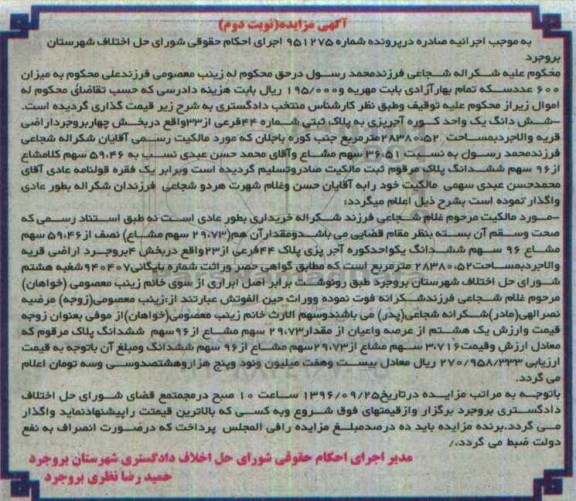 آگهی مزایده(نوبت دوم)
به موجب اجرائیه صادره درپرونده شماره ۹۵۱۲۷۵ اجرای احکام حقوقی شورای حل اختلاف شهرستان
بروجرد
محکوم علیه شکراله شجاعی فرزندمحمد رسول درحق محکوم له زینب معصومی فرزندعلی محکوم به میزان
۶۰۰ عددسکه تمام بهارآزادی بابت مهریه و۱۹۵/۰۰۰ ریال بابت هزینه دادرسی که حسب تقاضای محکوم له
اموال زیراز محکوم علیه توقیف وطبق نظر کارشناس منتخب دادگستری به شرح زیر قیمت گذاری گردیده است.
-شش دانگ یک واحد کوره آجرپزی به پلاک ثبتی شماره ۴۴فرعی از۲۳واقع دربخش چهاربروجرداراضی
قریه والاجردبمساحت ۲۸۳۸۰.۵۲مترمربع جنب کوره باجلان که مورد مالکیت رسمی آقایان شکراله شجاعی
فرزندمحمد رسول به نسبت ۳۶.۵۱ سهم مشاع وآقای محمد حسن عبدی نسبت به ۵۹.۴۶ سهم کلامشاع
از۹۶ سهم ششدانگ پلاک مرقوم ثبت مالکیت صادروتسلیم گردیده است وبرابر یک فقره قولنامه عادی آقای
محمدحسن عبدی سهمی مالکیت خود رابه آقایان حسن وغلام شهرت هردو شجاعی فرزندان شکراله بطور عادی
واگذار نموده است بشرح ذیل اعلام میگردد:
-مورد مالکیت مرحوم غلام شجاعی فرزند شکراله خریداری بطور عادی است نه طبق استناد رسمی که
صحت وسقم آن بسته بنظر مقام قضایی می باشدومقدارآن هم(۲۹.۷۳ سهم مشاع) نصف از۵۹.۴۶ سهم
مشاع ۹۶ سهم ششدانگ یکواحدکوره آجر پزی پلاک ۴۴فرعی از۲۳واقع دربخش ۴بروجرد اراضی قریه
والاجردبمساحت۲۸۳۸۰.۵۲ مترمربع است که مطابق گواهی حصر وراثت شماره بایگانی۹۴۰۴۰۷شعبه هشتم
شورای حل اختلاف شهرستان بروجرد طبق رونوشت برابر اصل ابرازی از سوی خانم زینب معصومی (خواهان)
مرحوم غلام شجاعی فرزندشکراله فوت نموده ووراث حین الفوتش عبارتند از:زینب معصومی(زوجه) مرضیه
نصرالهی(مادر)شکراله شجاعی(پدر) می باشندوسهم الارث خانم زینب معصومی(خواهان)از موفی بعنوان زوجه
قیمت وارزش یک هشتم از عرصه واعیان از مقدار۲۹.۷۳ سهم مشاع از۹۶ سهم ششدانگ پلاک مرقوم که
معادل ارزش وقیمت۳.۷۱۶ سهم مشاع از۲۹.۷۳سهم مشاع از۹۶ سهم ششدانگ ومبلغ آن باتوجه به قیمت
ارزیابی ۲۷۰/۹۵۸/۳۳۳ ریال معادل بیست وهفت میلیون ونود وپنج هزاروهشتصدوسی وسه تومان اعلام
می گردد.
باتوجه به مراتب مزایده درتاریخ۱۳۹۶/۰۹/۲۵ ساعت ۱۰ صبح درمجمتمع قضای شورای حل اختلاف
دادگستری بروجرد برگزار وازقیمتهای فوق شروع وبه کسی که بالاترین قیمتت راپیشنهادنماید واگذار
می گردد.برنده مزایده باید ده درصدمبلغ مزایده رافی المجلس پرداخت که درصورت انصراف به نفع
دولت ضبط می گردد./
مدیر اجرای احکام حقوقی شورای حل اخلاف دادگستری شهرستان بروجرد
حمید رضا نظری بروجرد